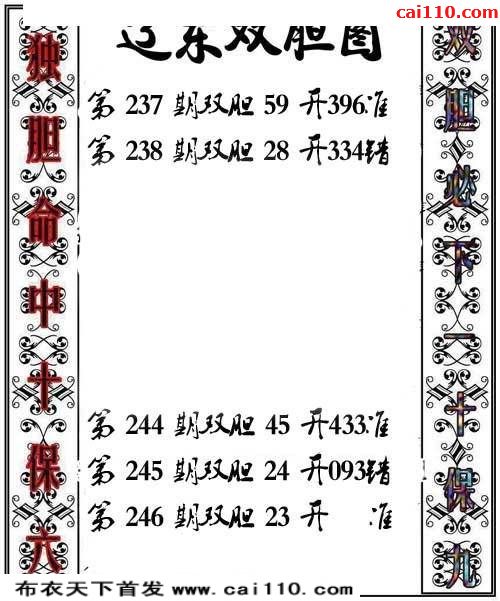 彩经网
cai110.com
辽东双胆图
独胆命中十保六
第 237 期双胆 59 开396准
第 238 期双胆 28 开334错
第 244 期双胆 45 开433准
第 245 期双胆 24 开093错
第 246 期双胆 23 开 准
双胆必下一十保九
布衣天下首发 www.cai110.com